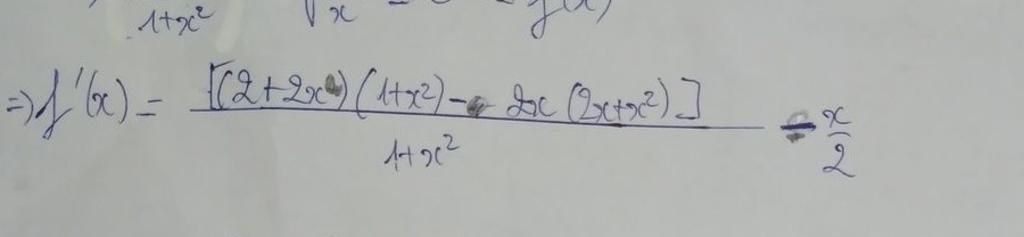 1+x² √x f(x)
=> f'(x) = [(2+2x)(1+x²) - 2x(2x+x²)] / 1+x² - x/2